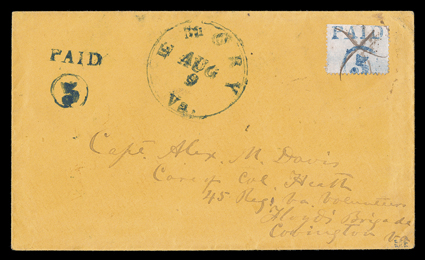 PAID
3
EMORY
AUG
9
VA.
PAID
Capt. Alex. M. Davis
Care of Col. Heath
45 Reg. Va. Volunteers
Floyd's Brigade
Covington Va